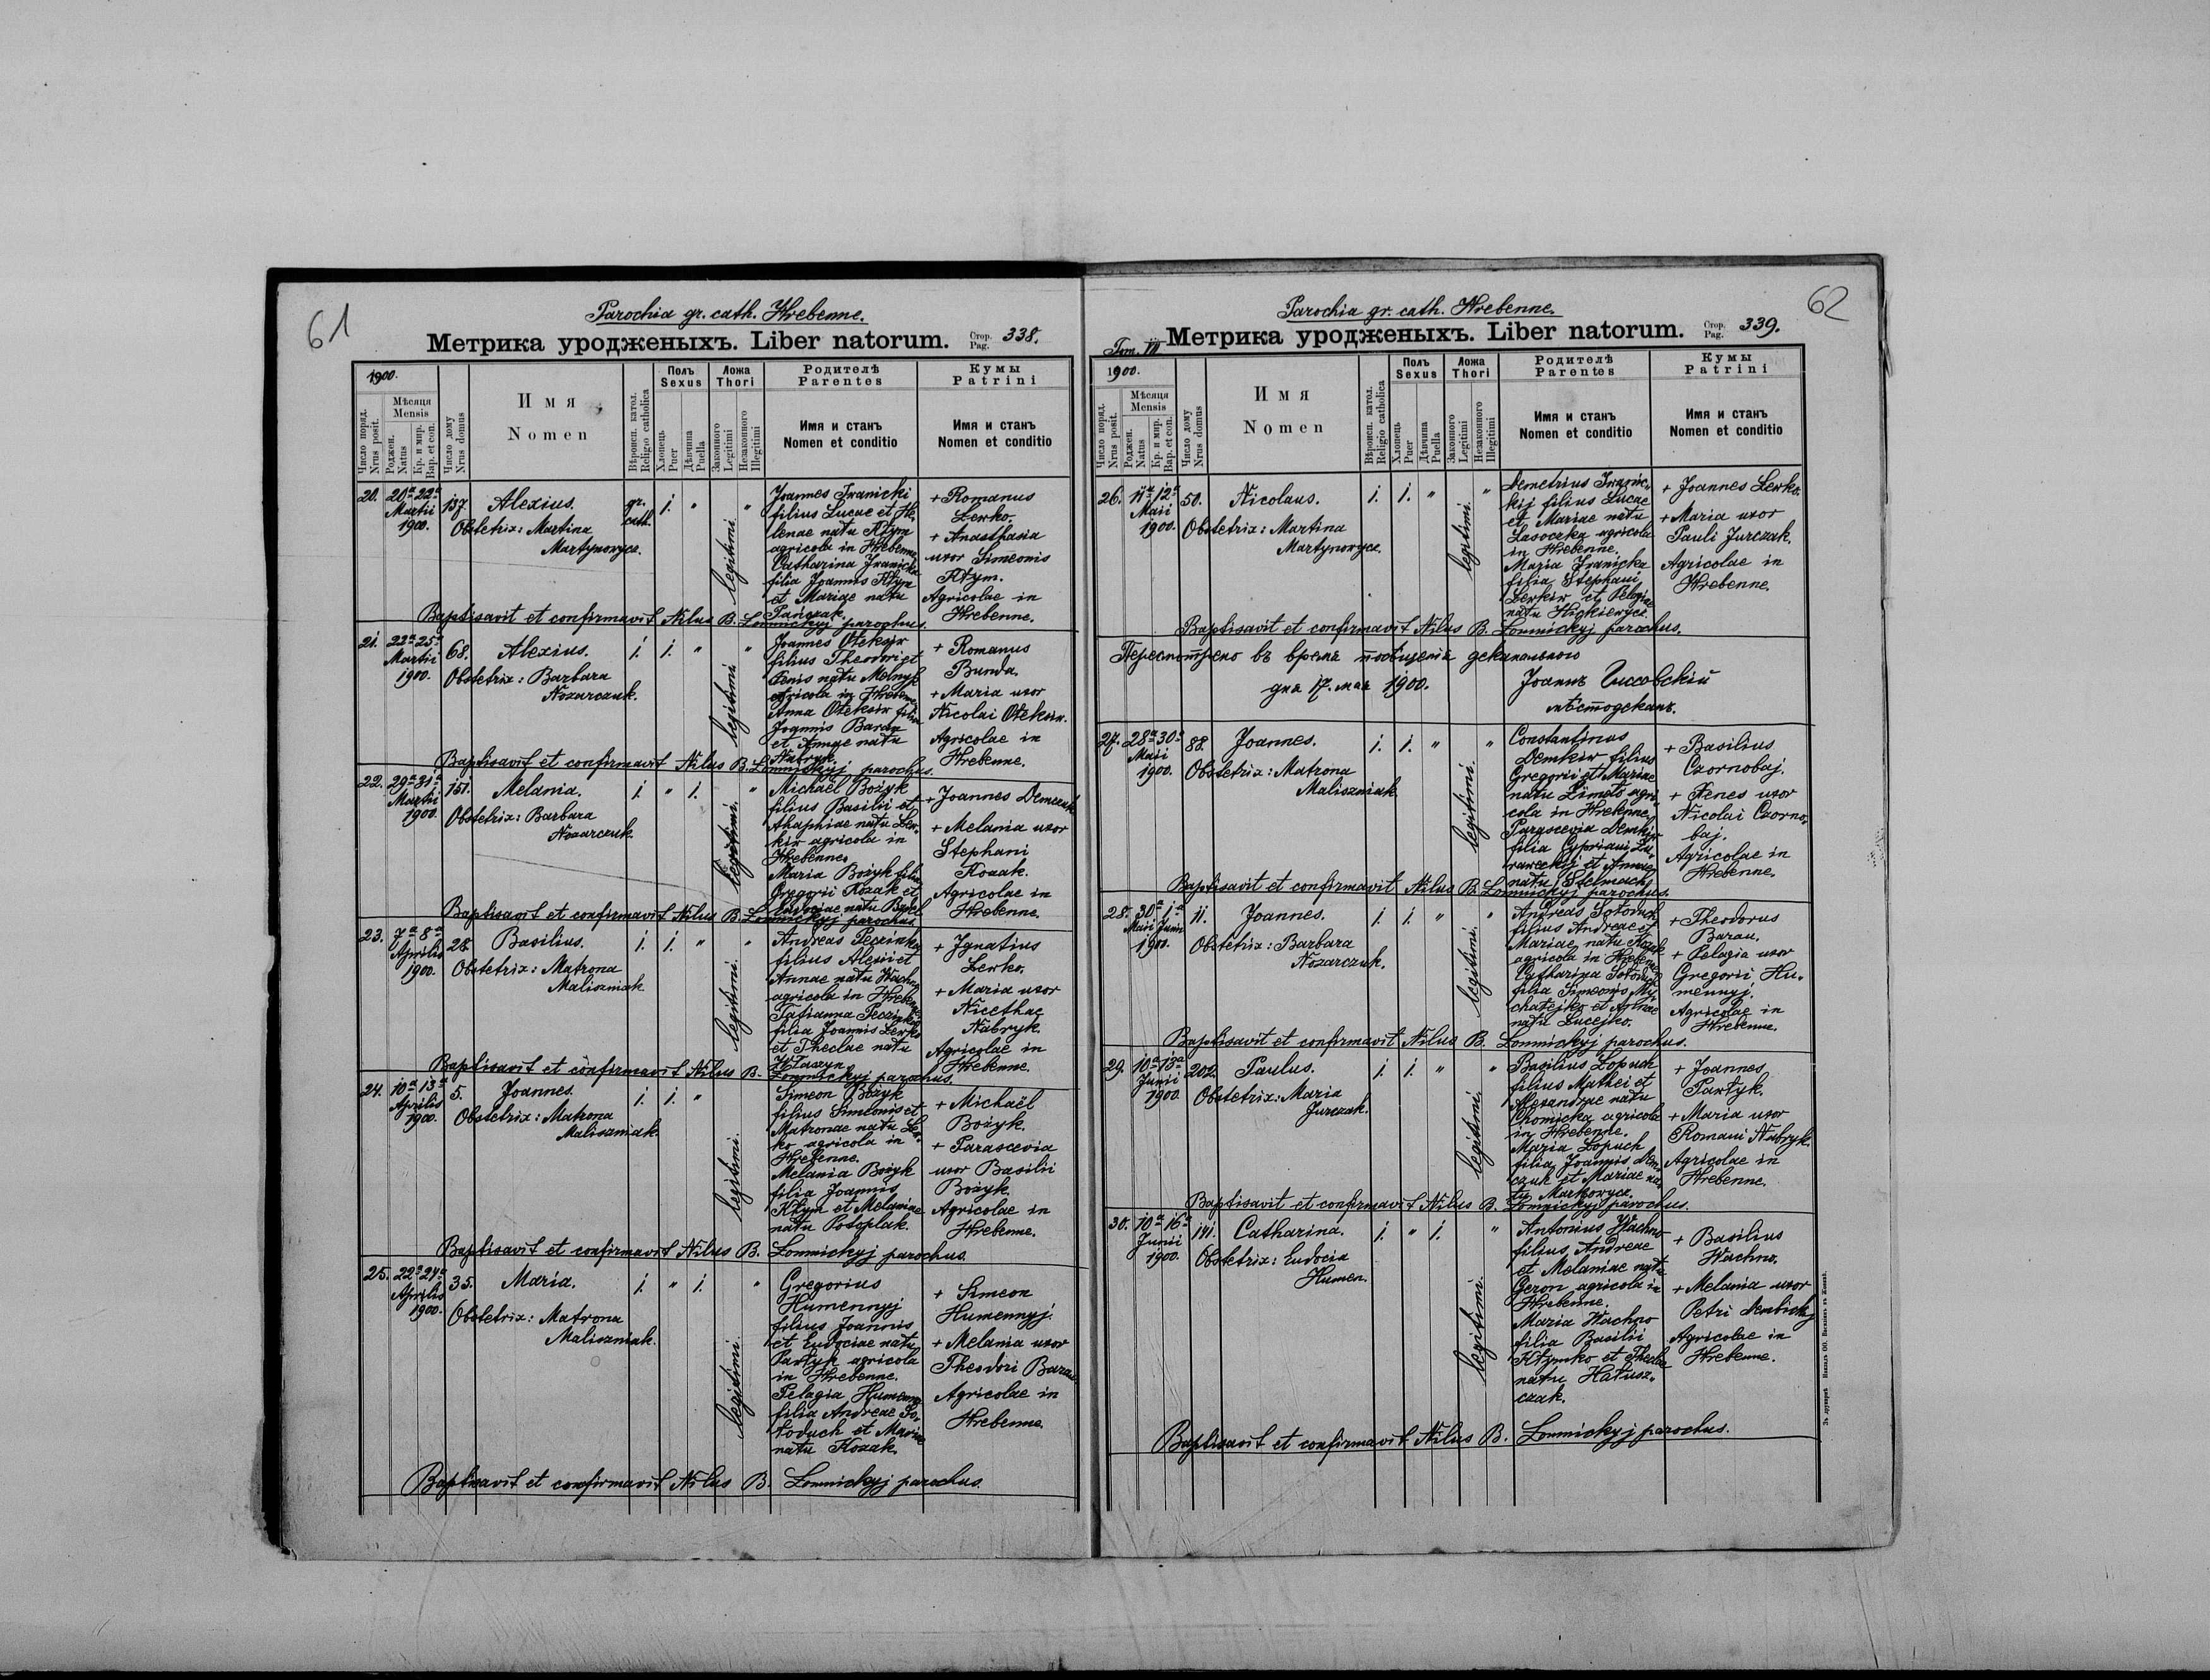 61
Parochia gr. cath. Hrebenne.
Метрика уродженыхъ. Liber natorum. Стор. Pag. 338.
1900.
Число поряд. Nrus posit.
Мѣсяця Mensis
Роджен. Natus
Кр. и мир. Bap. et con.
Число дому Nrus domus
Имя
Nomen
Вѣроисп. катол. Religio catholica
Полъ Sexus
Хлопець Puer
Дѣвчина Puella
Ложа Thori
Законного Legitimi
Незаконного Illegitimi
Родителѣ
Parentes
Имя и станъ
Nomen et conditio
Кумы
Patrini
Имя и станъ
Nomen et conditio
20. 20ª 22ª Martii 1900. 137. Alexius. gr. cath. 1. " legitimi. "
Obstetrix: Martina
Martynowycz.
Joannes Iranicki
filius Lucae et He,,
lenae natu Kłym
agricola in Hrebenne.
Catharina Iranicka
filia Joannis Kłym
et Mariae natu
Pańczak.
+ Romanus
Lewko.
+ Anasthasia
uxor Simeonis
Kłym.
Agricolae in
Hrebenne.
Baptisavit et confirmavit Nilus B. Łomnickyj parochus.
21. 22ª 25ª Martii 1900. 68. Alexius. 1. 1. " legitimi "
Obstetrix: Barbara
Nazarczuk.
Joannes Ołeksiw
filius Theodori et
Fenis natu Melnyk
agricola in Hrebenne
Anna Ołeksiw filia
Joannis Baran
et Annae natu
Nabryk.
+ Romanus
Bunda.
+ Maria uxor
Nicolai Ołeksiw.
Agricolae in
Hrebenne.
Baptisavit et confirmavit Nilus B. Łomnickyj parochus.
22. 29ª 31ª Martii 1900. 151. Melania. 1. " 1. legitimi. "
Obstetrix: Barbara
Nazarczuk.
Michaël Bożyk
filius Basilii et
Ahaphiae natu Lew,,
kiw agricola in
Hrebenne.
Maria Bożyk filia
Gregorii Kozak et
Eudociae natu
+ Joannes Demczuk
+ Melania uxor
Stephani
Kozak.
Agricolae in
Hrebenne.
Baptisavit et confirmavit Nilus B. Łomnickyj parochus.
23. 7ª 8ª Aprilis 1900. 28. Basilius. 1. 1. " legitimi. "
Obstetrix: Matrona
Maliszniak.
Andreas Peczinka
filius Alexii et
Annae natu Wachno
agricola in Hrebenne.
Tatianna Peczinka
filia Joannis Lewko
et Theclae natu
+ Ignatius
Lewko.
+ Maria uxor
Nicethae
Nabryk.
Agricolae in
Hrebenne.
Baptisavit et confirmavit Nilus B. Łomnickyj parochus.
24. 10ª 13ª Aprilis 1900. 5. Joannes. 1. 1. " legitimi.
Obstetrix: Matrona
Maliszniak.
Simeon Bożyk
filius Simeonis et
Matronae natu Le,,
ko agricola in
Hrebenne.
Melania Bożyk
filia Joannis
Kłym et Melaniae
natu Potoplak.
+ Michaël
Bożyk.
+ Parascevia
uxor Basilii
Bożyk.
Agricolae in
Hrebenne.
Baptisavit et confirmavit Nilus B. Łomnickyj parochus.
25. 22ª 24ª Aprilis 1900. 35. Maria. 1. " 1. legitimi. "
Obstetrix: Matrona
Maliszniak.
Gregorius
Humennyj
filius Joannis
et Eudociae natu
Partyk agricola
in Hrebenne.
Pelagia Humenna
filia Andreae So,,
łoduch et Mariae
natu Kozak.
+ Simeon
Humennyj.
+ Melania uxor
Theodori Baran.
Agricolae in
Hrebenne.
Baptisavit et confirmavit Nilus B. Łomnickyj parochus.
62
Parochia gr. cath. Hrebenne.
Tom. VII Метрика уродженыхъ. Liber natorum. Стор. Pag. 339.
1900.
Число поряд. Nrus posit.
Мѣсяця Mensis
Роджен. Natus
Кр. и мир. Bap. et con.
Число дому Nrus domus
Имя
Nomen
Вѣроисп. катол. Religio catholica
Полъ Sexus
Хлопець Puer
Дѣвчина Puella
Ложа Thori
Законного Legitimi
Незаконного Illegitimi
Родителѣ
Parentes
Имя и станъ
Nomen et conditio
Кумы
Patrini
Имя и станъ
Nomen et conditio
26. 11ª 12ª Maii 1900. 50. Nicolaus. 1. 1. " legitimi. "
Obstetrix: Martina
Martynowycz.
Demetrius Iranic,,
kij filius Lucae
et Mariae natu
Lasoczka agricola
in Hrebenne.
Maria Iranicka
filia Stephani
Lewkiw et Pelagiae
natu
+ Joannes Lewko.
+ Maria uxor
Pauli Jurczak.
Agricolae in
Hrebenne.
Baptisavit et confirmavit Nilus B. Łomnickyj parochus.
Пересмотрено въ время посѣщенія деканального
дня 17. мая 1900.
Іоаннъ
мѣстодеканъ.
27. 28ª 30ª Maii 1900. 88. Joannes. 1. 1. " legitimi. "
Obstetrix: Matrona
Maliszniak.
Constantinus
Demkiw filius
Gregorii et Mariae
natu agri,,
cola in Hrebenne.
Parascevia Demkiw
filia Cypriani
et Annae
natu Stelmach.
+ Basilius
Czornobaj.
+ Fenes uxor
Nicolai Czorno,,
baj.
Agricolae in
Hrebenne.
Baptisavit et confirmavit Nilus B. Łomnickyj parochus.
28. 30ª Maii 1ª Junii 1900. 11. Joannes. 1. 1. " legitimi. "
Obstetrix: Barbara
Nazarczuk.
Andreas Sołoduch
filius Andreae et
Mariae natu Kozak
agricola in Hrebenne.
Catharina Sołoduch
filia Simeonis My,,
chatejko et Annae
natu Lucejko.
+ Theodorus
Baran.
+ Pelagia uxor
Gregorii Hu,,
mennyj.
Agricolae in
Hrebenne.
Baptisavit et confirmavit Nilus B. Łomnickyj parochus.
29. 10ª 13ª Junii 1900. 202. Paulus. 1. 1. " legitimi. "
Obstetrix: Maria
Jurczak.
Basilius Łopuch
filius Mathei et
Alexandrae natu
Chomicka agricola
in Hrebenne.
Maria Łopuch
filia Joannis Dem,,
czuk et Mariae na,,
tu Markowycz.
+ Joannes
Partyk.
+ Maria uxor
Romani Nabryk.
Agricolae in
Hrebenne.
Baptisavit et confirmavit Nilus B. Łomnickyj parochus.
30. 10ª 16ª Junii 1900. 141. Catharina. 1. " 1. legitimi. "
Obstetrix: Eudocia
Humen.
Antonius Wachno
filius Andreae
et Melaniae natu
Geron agricola in
Hrebenne.
Maria Wachno
filia Basilii
Kłymko et Theclae
natu Hałusz,,
czak.
+ Basilius
Wachno.
+ Melania uxor
Petri Dembicky
Agricolae in
Hrebenne.
Baptisavit et confirmavit Nilus B. Łomnickyj parochus.